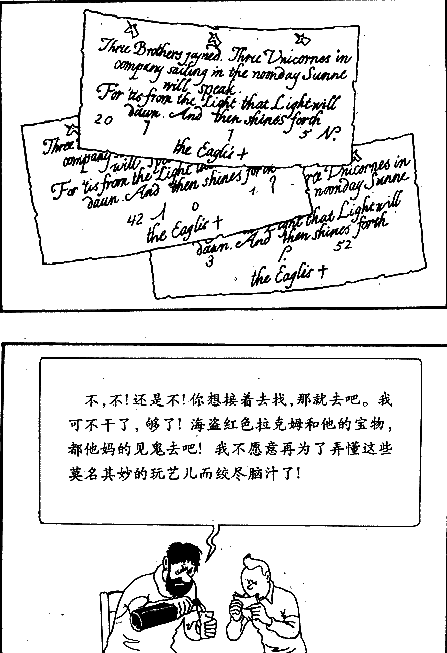 Three Brothers joyned. Three Unicornes in
company sailing in the noonday Sunne
will speak.
For 'tis from the Light that Light will
dawn. And then shines forth
20 7 1 5 N.
the Eagle's +
Three
company
will
For 'tis from the Light
dawn. And then shines forth
42 0 1
the Eagle's +
Unicornes in
noonday Sunne
Light that Light will
dawn. And then shines forth
3 52
the Eagle's +
不,不!还是不!你想接着去找,那就去吧。我
可不干了,够了!海盗红色拉克姆和他的宝物,
都他妈的见鬼去吧!我不愿意再为了弄懂这些
莫名其妙的玩艺儿而绞尽脑汁了!